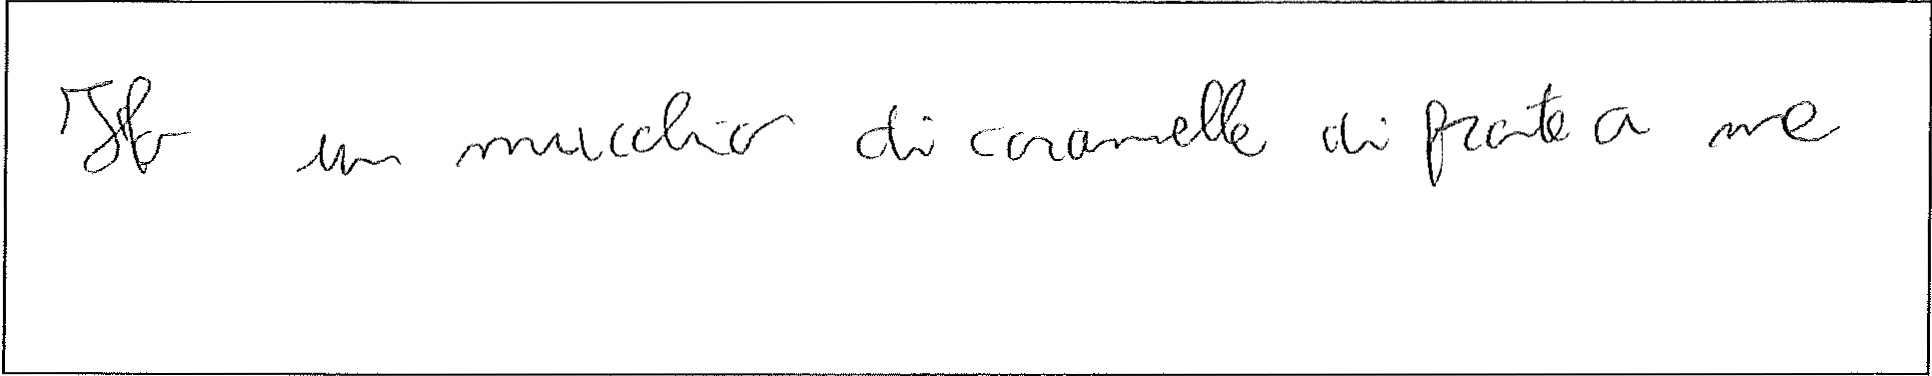 Ho un mucchio di caramelle di fronte a me